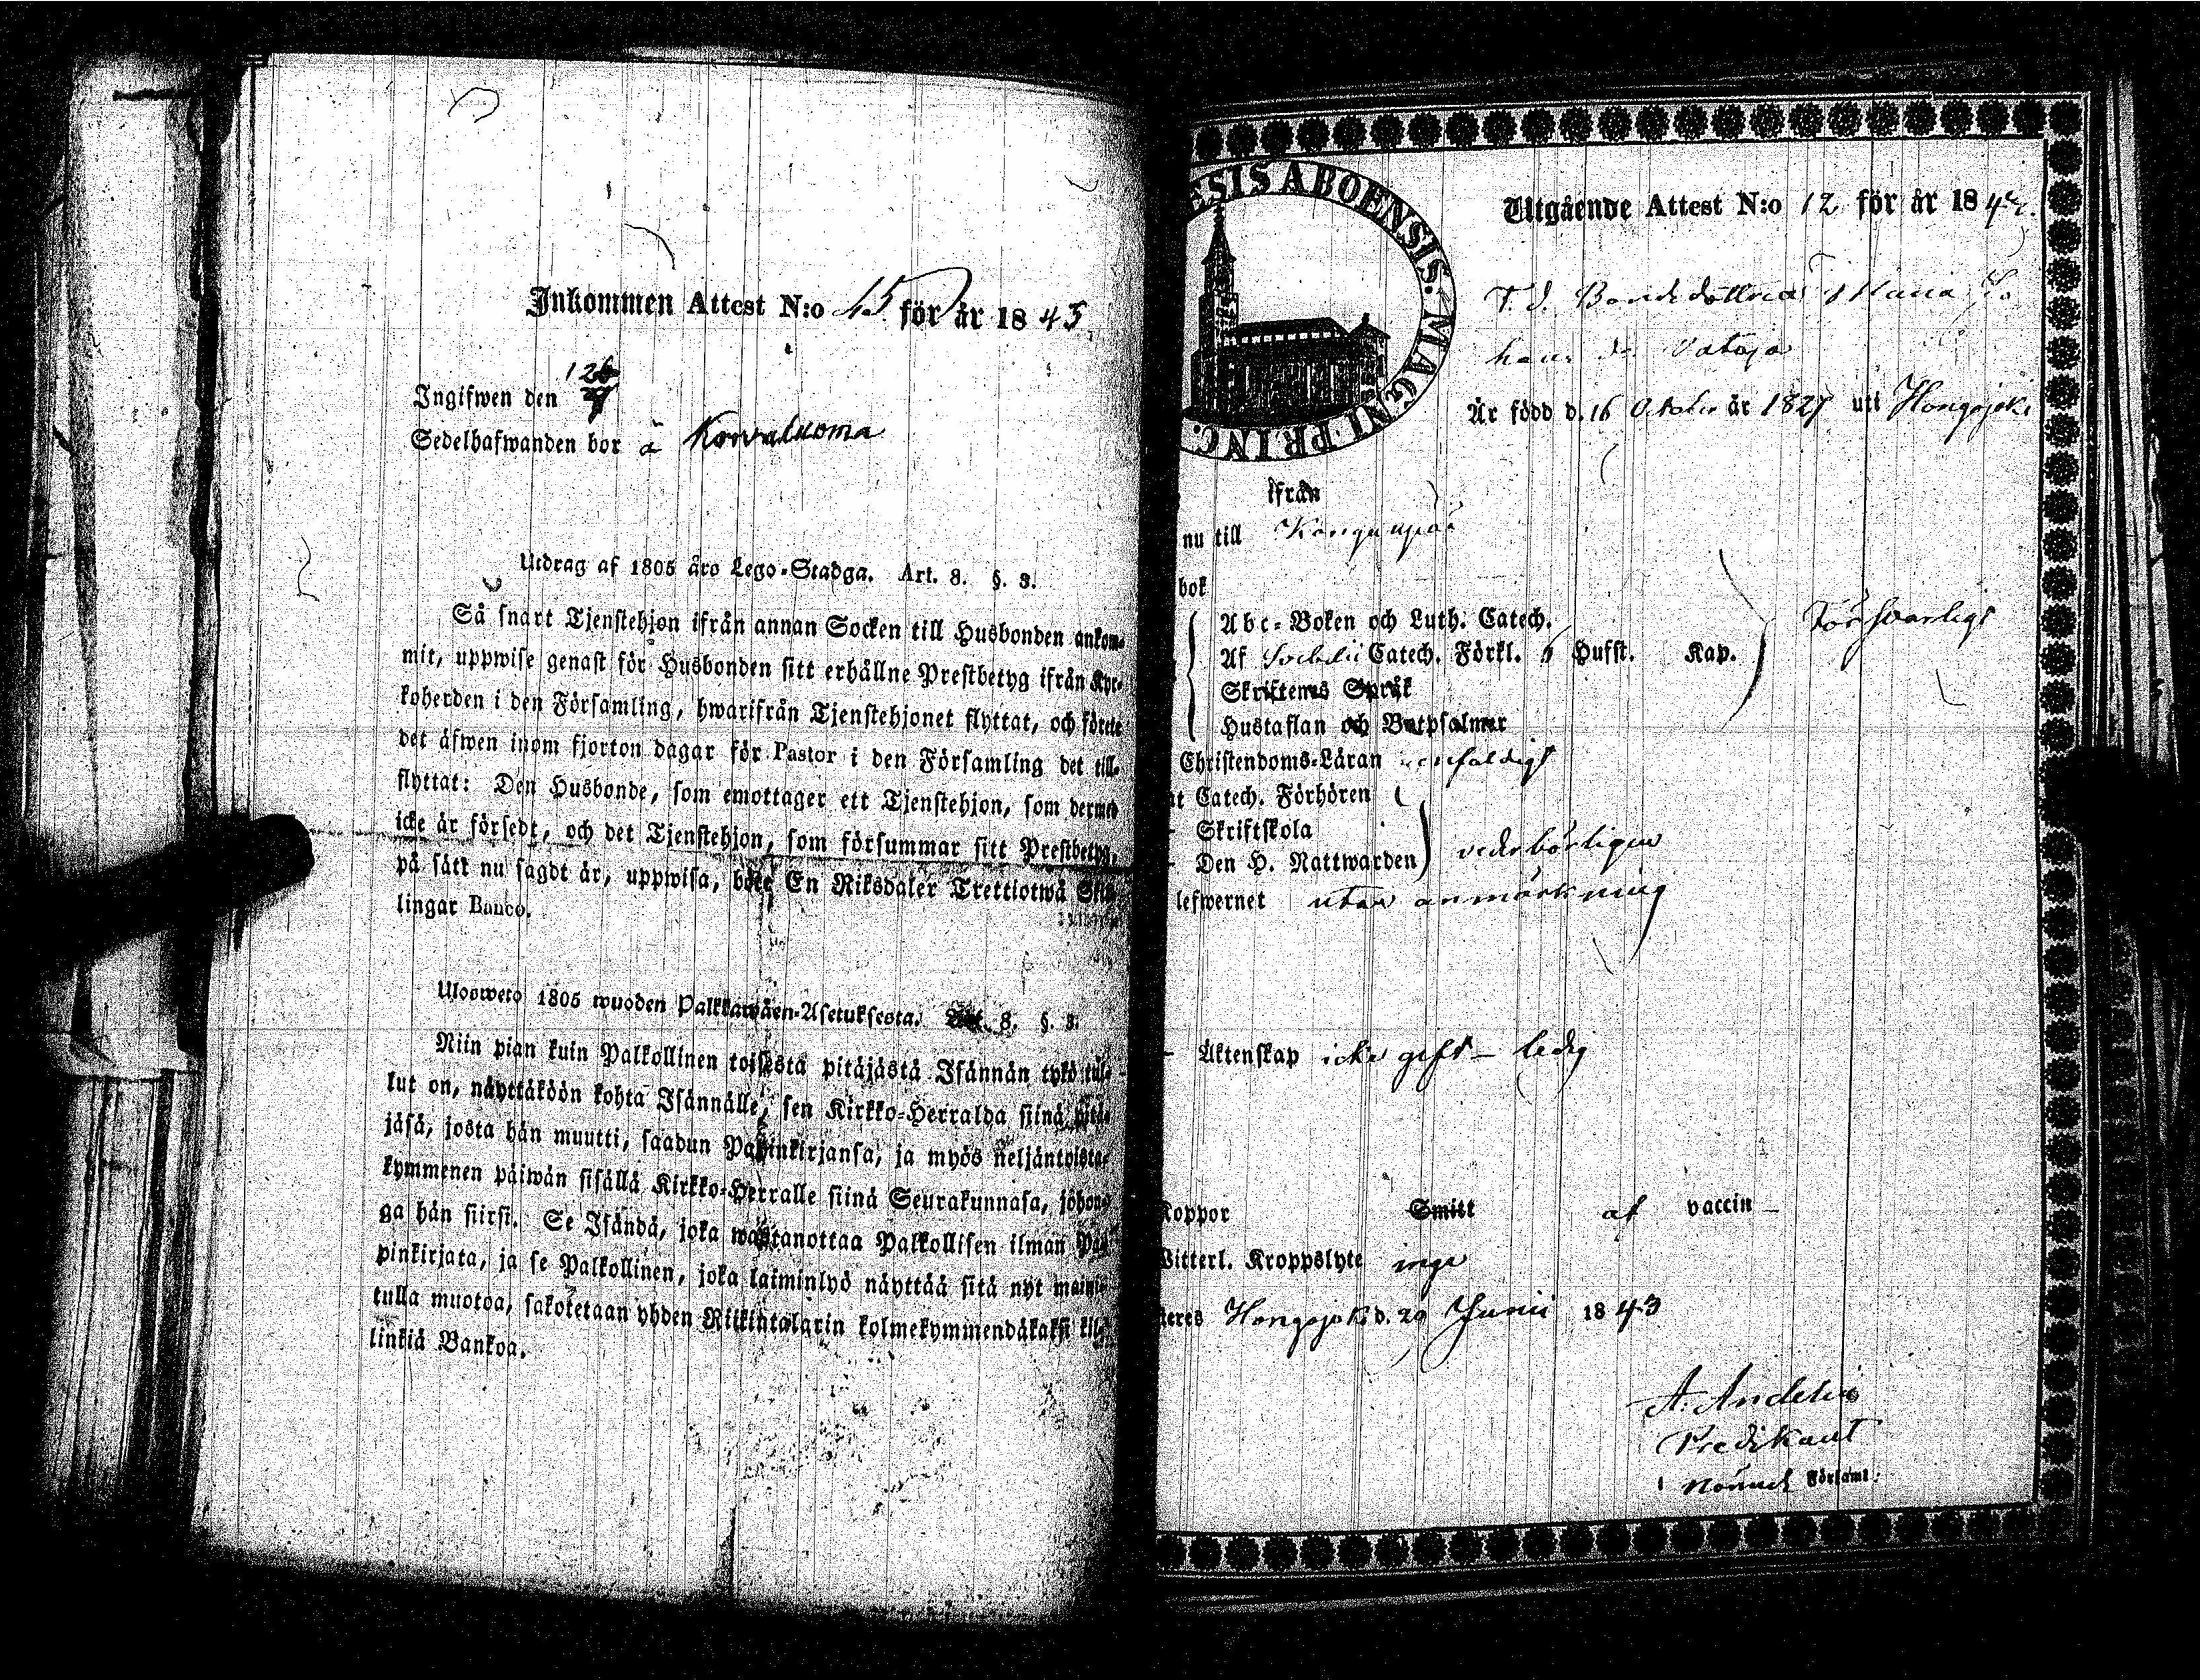 Inkommen Attest N:o 15 för år 1843
Ingifwen den 126
Sedelhafwanden bor å
Utdrag af 1805 åro Lego-Stadga. Art. 8. §. 3.
Så snart Tjenstehjon ifrån annan Socken till Husbonden ankom-
mit, uppwise genast för Husbonden sitt erhållne Prestbetyg ifrån Kyr-
koherden i den Församling, hwarifrån Tjenstehjonet flyttat, och förete
det äfwen inom fjorton dagar för Pastor i den Församling det till-
flyttat: Den Husbonde, som emottager ett Tjenstehjon, som dermed
icke är försedt, och det Tjenstehjon, som försummar sitt Prestbetyg,
på sätt nu sagdt är, uppwisa, böte En Riksdaler Trettiotwå Skil-
lingar Banco.
Ulosweto 1805 wuoden Palkkawäen-Asetuksesta. Art. 8. §. 3.
Niin pian kuin Palkollinen toisesta pitäjästä Isännän tykö tul-
lut on, näyttäköön kohta Isännälle, sen Kirkko-Herralda siinä pitä-
jäsä, josta hän muutti, saadun Papinkirjansa, ja myös neljäntoista-
kymmenen päiwän sisällä Kirkko-Herralle siinä Seurakunnasa, johon-
ga hän siirsi. Se Isändä, joka wastanottaa Palkollisen ilman Pap-
pinkirjata, ja se Palkollinen, joka laiminlyö näyttää sitä nyt mainit-
tulla muotoa, sakotetaan yhden Riikintalarin kolmekymmendäkaksi kil-
linkiä Bankoa.
ESIS ABOENSIS. MAGNI PRINC.
Utgående Attest N:o 12 för år 1843.
T. d. Bondedottren Maria Jo
hans dr
Är född d. 16 October år 1827 uti Hongojoki
ifrån
nu till Kangunpää
bok
Abc-Boken och Luth. Catech.
Af Catech. Förkl. 6 Hufst. Kap. Försvarligt
Skriftens Språk
Hustaflan och Botpsalmer
Christendoms-Läran enfaldigt
Catech. Förhören
Skriftskola
Den H. Nattwarden vederbörligen
lefwernet utan anmärkning
Äktenskap icke gift - ledig
Koppor Smitt af vaccin
Witterl. Kroppslyte inga
Hongojoki d. 29 Junii 1843
A. Andelin
Predikant
i nämnde Församl.